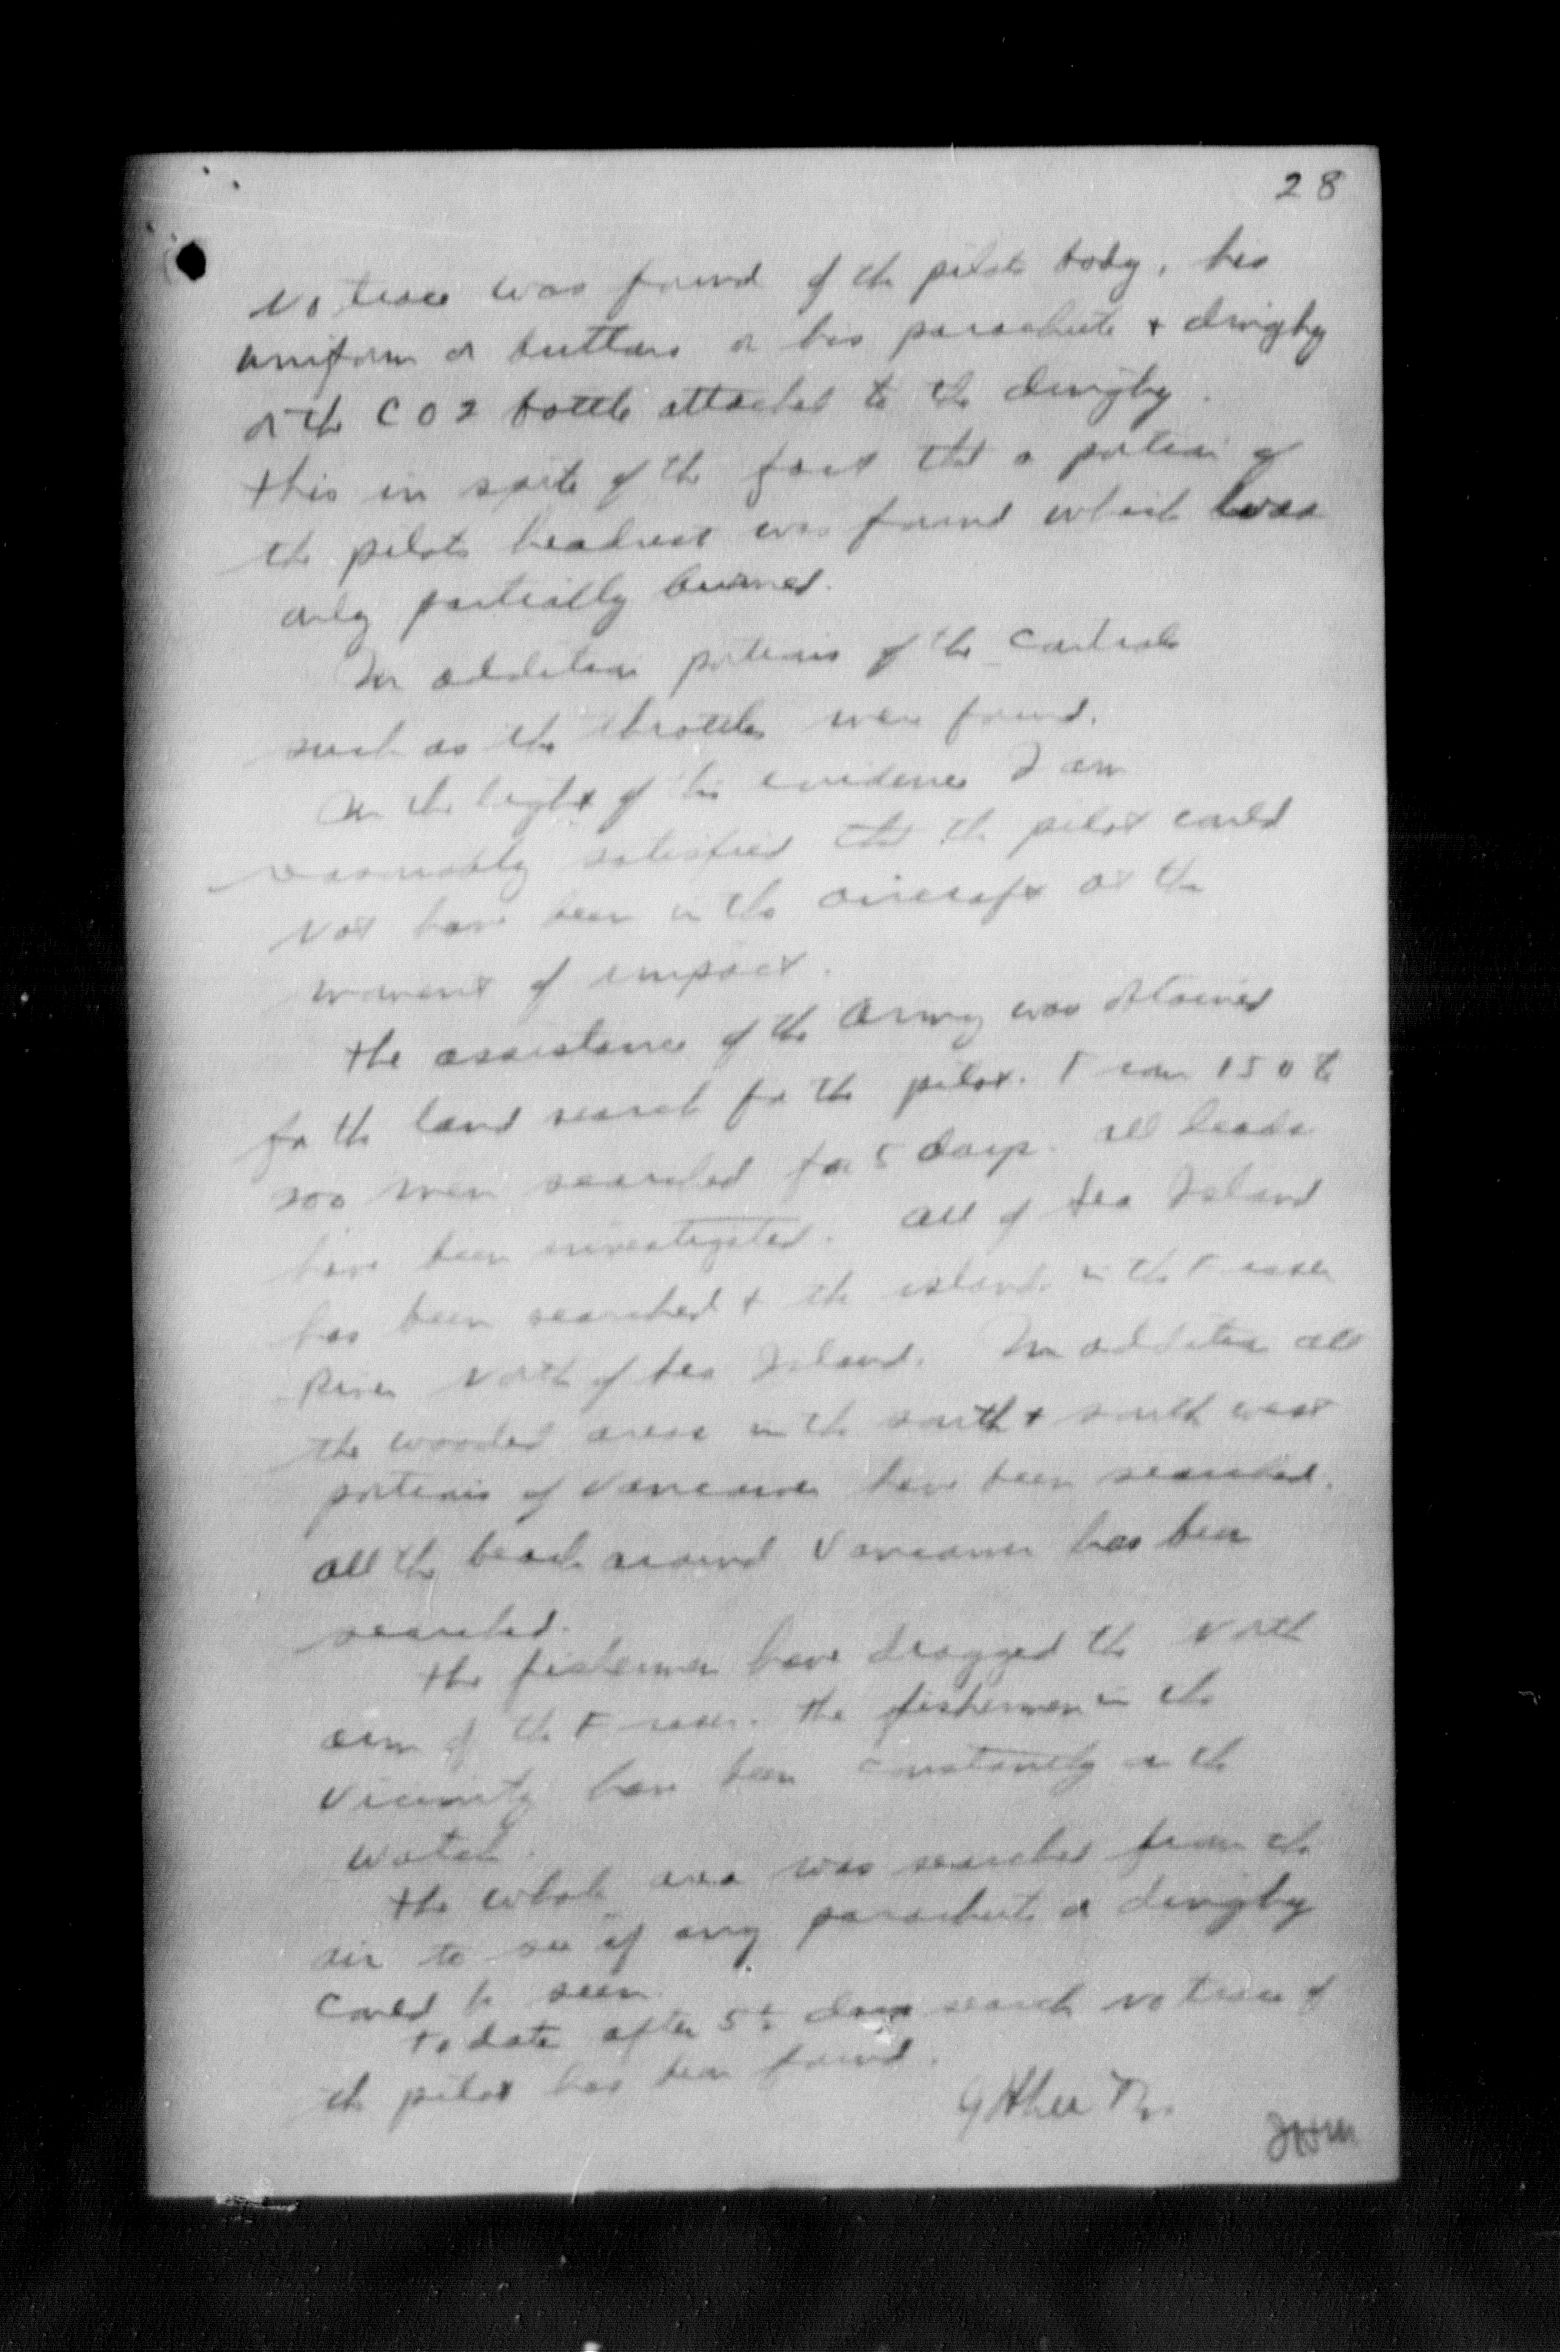 28
No trace was found of the pilots body, his
uniform or buttons or his parachute + dinghy
or the CO2 bottle attached to the dinghy.
This in spite of the fact that a portion of
the pilots headrest was found which was
only partially burned.
In addition portions of the controls
such as the throttles were found.
In the light of this evidence I am
reasonably satisfied that the pilot could
not have been in the aircraft at the
moment of impact.
The assistance of the Army was obtained
for the land search for the pilot. From 150 to
200 men searched for 5 days. All leads
have been investigated. All of Sea Island
has been searched + the islands in the Fraser
River North of Sea Island. In addition all
the wooded areas in the south + south west
portions of Vancouver have been searched.
All the beach around Vancouver has been
searched.
The fishermen have dragged the North
arm of the Fraser. The fishermen in the
vicinity have been constantly on the
watch.
The whole area was searched from the
air to see if any parachute or dinghy
could be seen.
To date after 5½ days search no trace of
the pilot has been found.